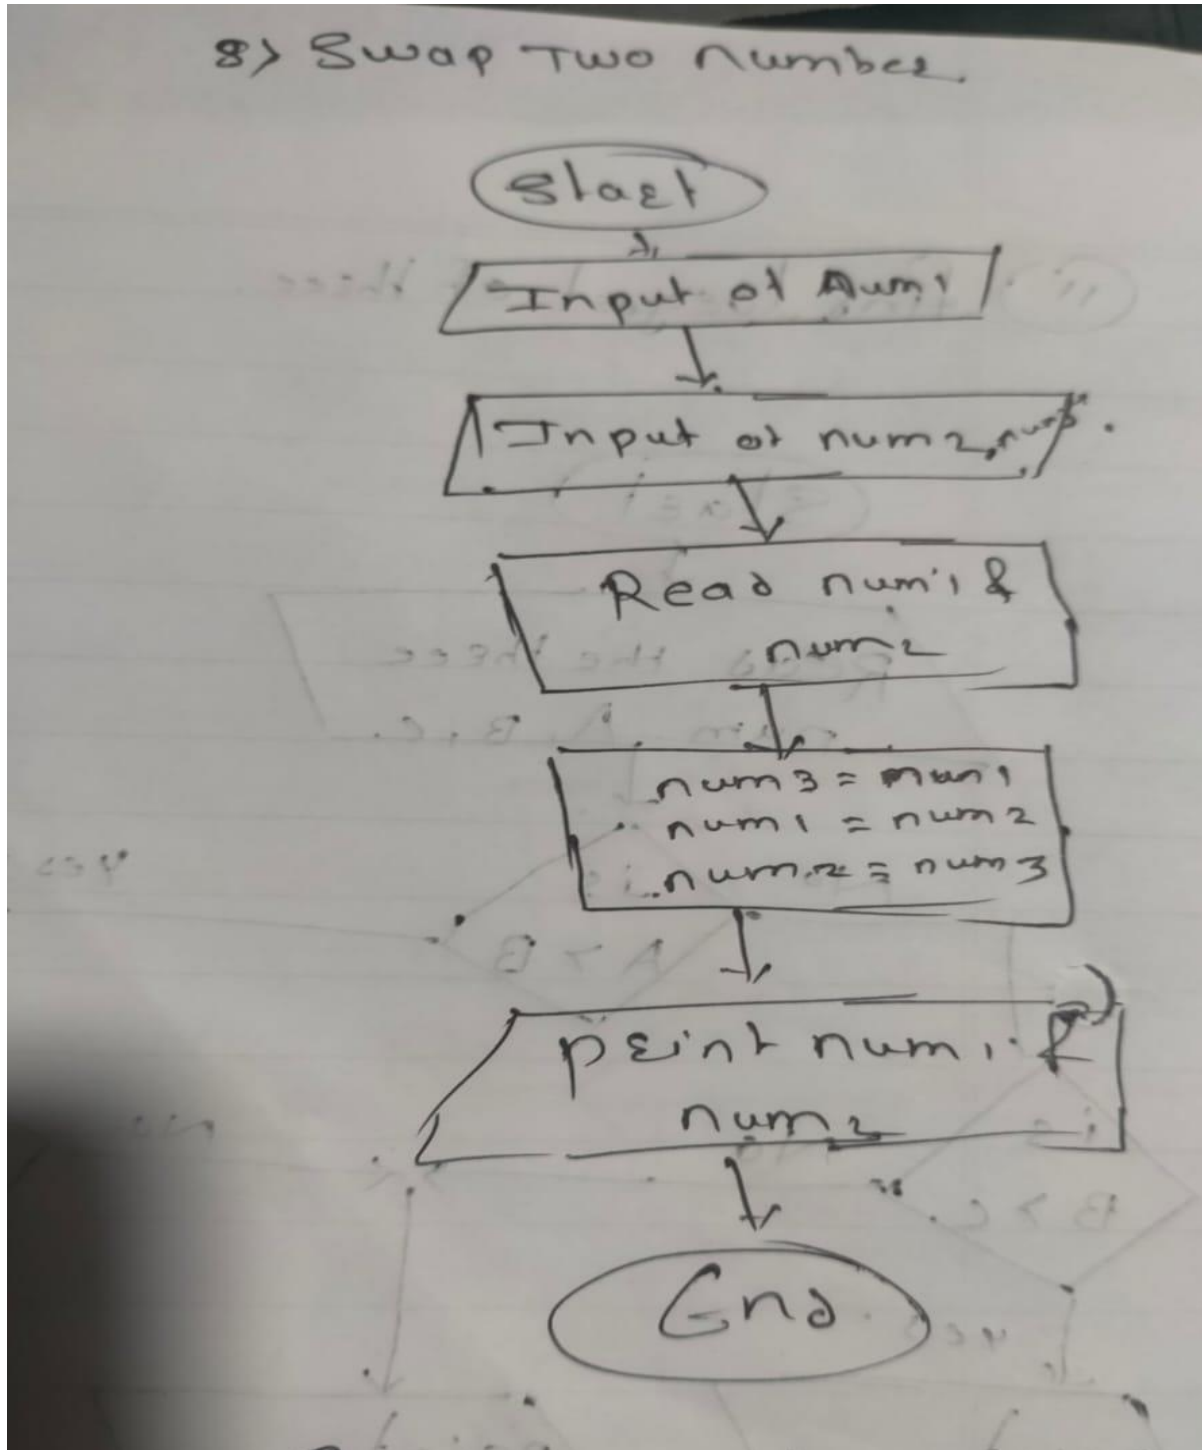 8) Swap Two Number.
Start
Input of num1
Input of num2, num3.
Read num1 &
num2
num3 = num1
num1 = num2
num2 = num3
print num1 &
num2
End